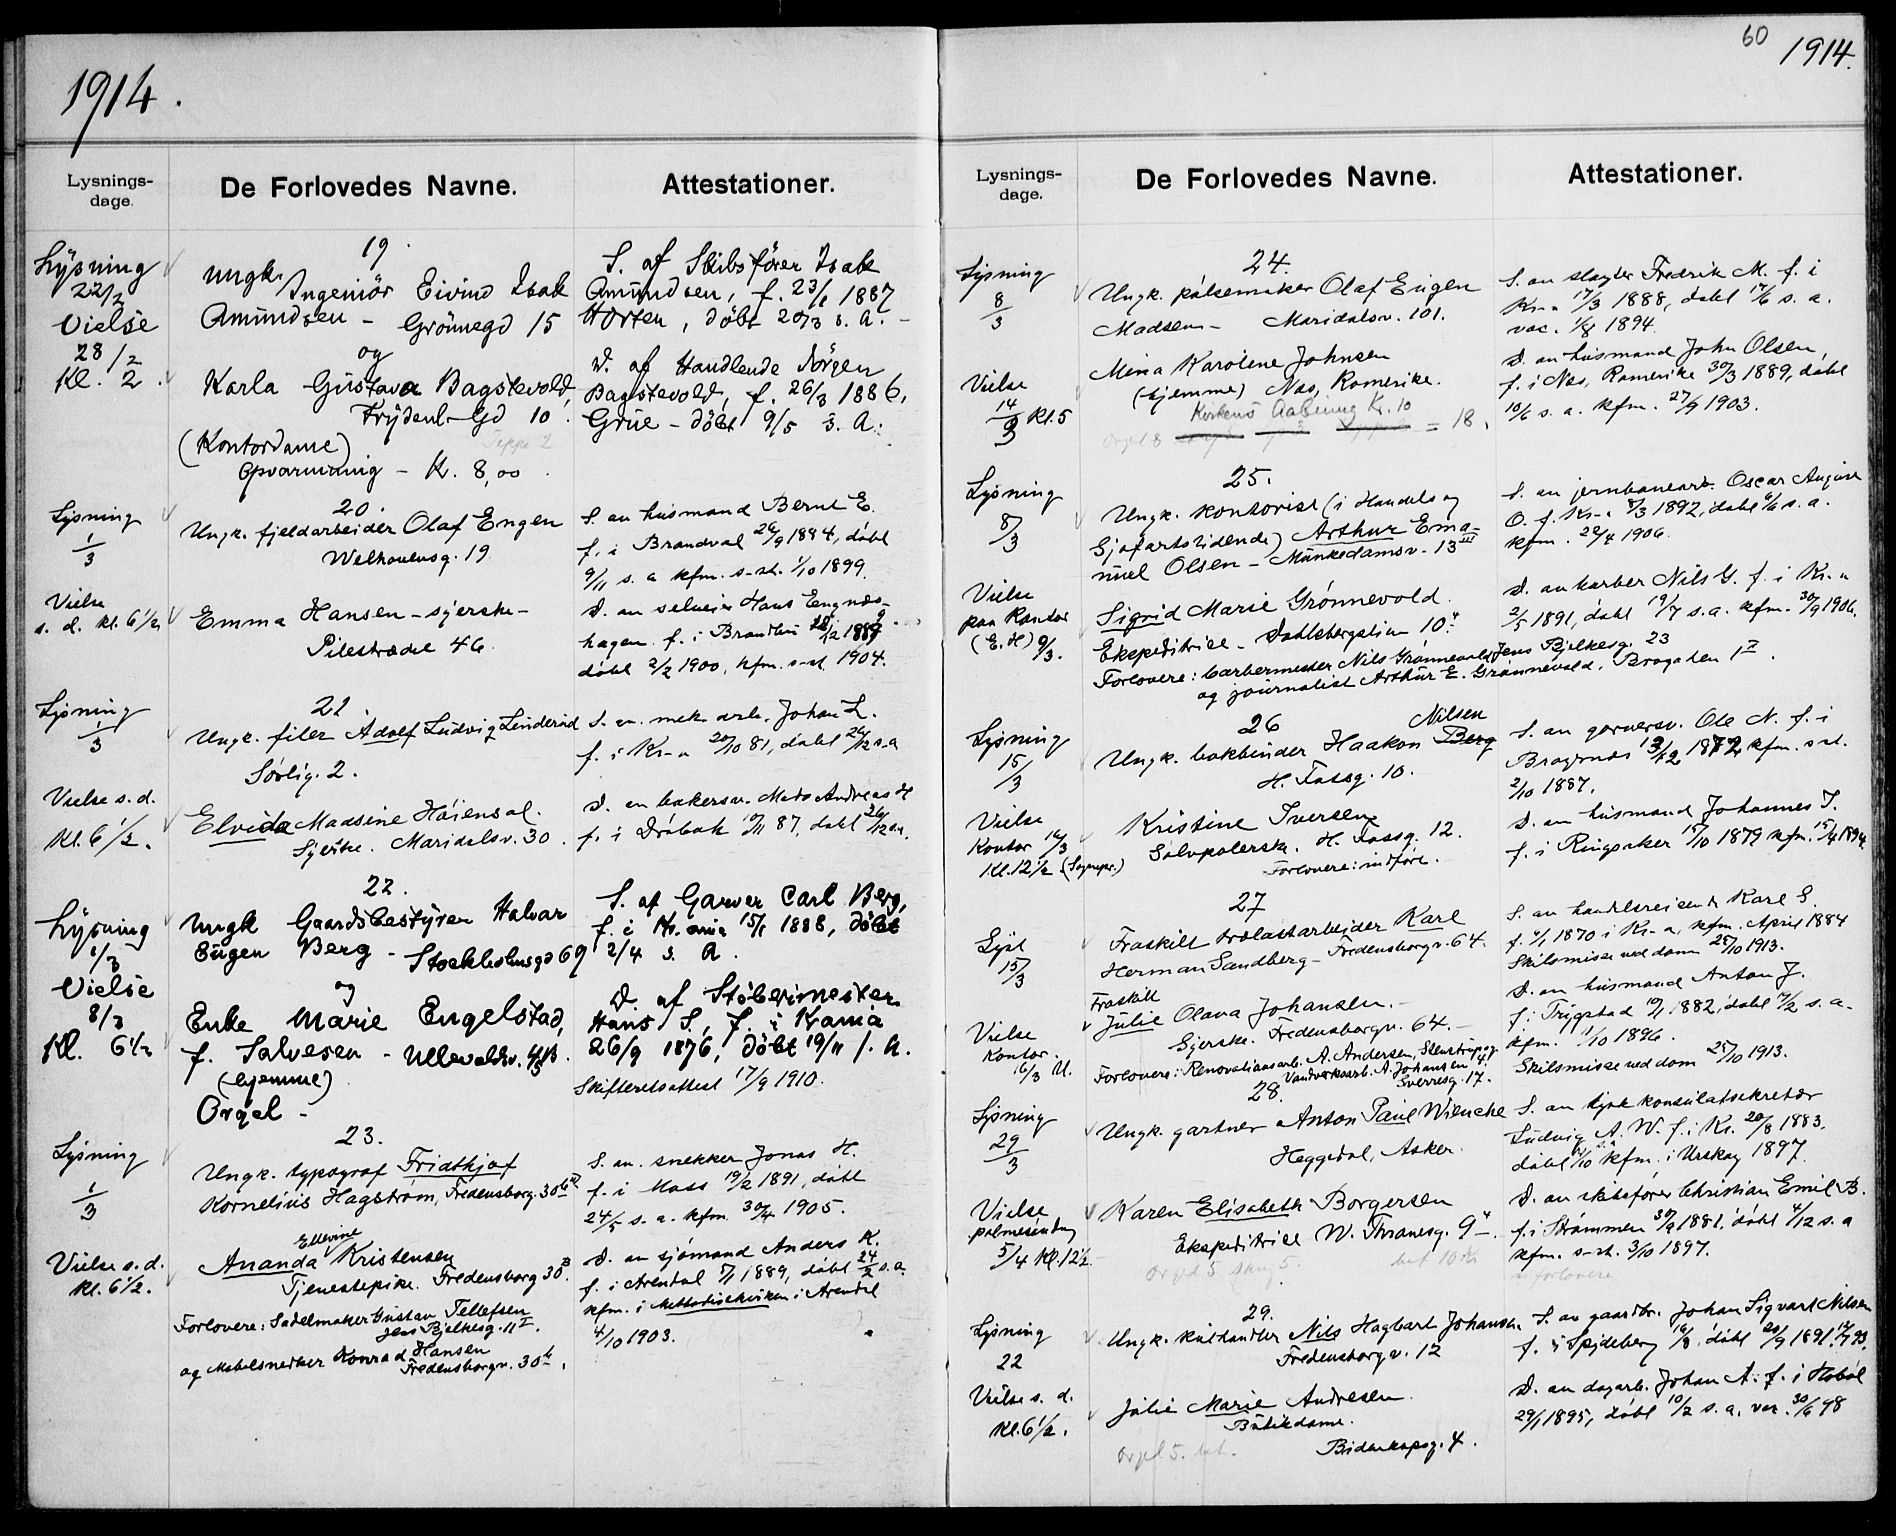 1914.
Lysnings-
dage.
De Forlovedes Navne.
Attestationer.
19.
Lysning
22/2
Vielse
28/2
Kl. 2.
ungk. Ingeniör Eivind Isak
Amundsen - Grönnegd 15
og
Karla Gustava Bagstevold,
Frydenl-Gd 10.
(Kontordame)
Opvarmning - Kr. 8,00.
S. af Skibsfører Isak
Amundsen, f. 23/1 1887
Horten, döbt 20/3 s. A. -
D. af Handlende Jörgen
Bagstevold, f. 26/3 1886,
Grue - döbt 9/5 s. A.
20.
Lysning
1/3
Vielse
s. d. Kl. 6 1/2
Ungk. fjeldarbeider Olaf Engen
Welhavensg. 19.
Emma Hansen - syerske -
Pilestrædet 46.
S. av husmand Bernt E.
f. i Brandval 26/9 1884, døbt
9/11 s. a. kfm. s-st. 1/10 1899.
D. av selveier Hans
hagen f. i
døbt 2/2 1900, kfm. s-st. 1904.
21.
Lysning
1/3
Vielse s. d.
Kl. 6 1/2.
Ungk. filer Adolf Ludvig Linderud
Sørlig. 2.
Elvida Maasine Høiensal.
Syerske. Maridalsv. 30.
S. av. mek. arb. Johan L.
f. i Kr-a 20/10 81, døbt 26/12 s.a
D. av bakersv. Mads Andreas H
f. i Drøbak 10/11 87, døbt 26/12 s.a.
22.
Lysning
1/3
Vielse
8/3
Kl. 6 1/2
Ungk Gaardsbestyrer Halvar
Eugen Berg - Stockholmsgd 69
og
Enke Marie Engelstad,
f. Salvesen - Ullevoldsv.
(hjemme)
Orgel -
S. af Garver Carl Berg,
f. i Kr.ania 15/1 1888, döbt
2/4 s. A.
D. af Støberimester
Hans S., f. i Kr.ania
26/9 1876, döbt 19/11 s. A.
Skifteretsattest 17/9 1910.
23.
Lysning
1/3
Vielse s. d.
Kl. 6 1/2.
Ungk. typograf Fridthjof
Kornelius Hagstrøm, Fredensborg. 30
Ellevine
Ananda Kristensen
Tjenestepike. Fredensborg 30
Forlovere: Sadelmaker Gustav Tellefsen
Jens Bjelkesg. 11 I.
og Møbelsnedker Konrad Hansen
Fredensborgv. 30 b.
S. av. snekker Jonas H.
f. i Moss 19/2 1891, døbt
24/5 s. a. kfm. 30/4 1905.
D. av sjömand Anders K.
f. i Arendal 5/1 1889, døbt 24/2 s. a.
kfm. i Methodistkirken i Arendal
4/10 1903.
60
1914.
Lysnings-
dage.
De Forlovedes Navne.
Attestationer.
24.
Lysning
8/3
Vielse
14/3 Kl. 5
Ungk. pølsemaker Olaf Eugen
Madsen - Maridalsv. 101.
Mina Karoline Johnsen
(hjemme) Nes, Romerike.
Kirkens Aabning Kr. 10
= 18.
S. av slagter Fredrik M. f. i
Kr.a 17/3 1888, døbt 17/6 s. a.
vac. 1/8 1894.
D. av husmand John Olsen,
f. i Nes, Romerike 30/3 1889, døbt
10/6 s. a. kfm. 27/9 1903.
25.
Lysning
8/3
Vielse
paa Kontor
(E. H) 9/3.
Ungk. kontorist (i Handels og
Sjøfartstidende) Arthur Ema-
nuel Olsen - Munkedamsv. 13 III
Sigrid Marie Grønnevold.
Ekspeditrice - Dahlsbergstien 10.
Forlovere: barbermester Nils Grønnevold, Jens Bjelkesg. 23
og journalist Arthur E. Grønnevold. Brogaten 1 I.
S. av jernbanearb. Oscar August
O. f. Kr.-a 8/3 1892, døbt 6/6 s. a.
kfm. 22/4 1906.
D. av barber Nils G. f. i Kr.-a
2/5 1891, døbt 19/7 s. a. kfm. 30/9 1906.
26
Lysning
15/3
Vielse
Kontor 16/3
Kl. 12 1/2 (Sognepr.)
Nilsen
Ungk. bokbinder Haakon Berg
H. Tossg. 10.
Kristine Iversen
Sølvpolersk. H. Tossg. 12.
Forlovere: indføre.
S. av garversv. Ole N. f. i
Bragenes 13/12 1872, kfm. s-st.
2/10 1887.
D. av husmand Johannes I.
f. i Ringsaker 15/10 1879 kfm. 15/4 1894
27
Lyst
15/3
Vielse
Kontor.
16/3
Fraskilt trælastarbeider Karl
Herman Sandberg - Fredensborgv. 64.
Fraskilt
Julie Olava Johansen. -
Syerske. Fredensborgv. 64. -
Forlovere: Renovationsarb. A. Andersen, Stenstrupsg
Vandverksarb. A. Johansen
Sverresg. 17.
S. av handelsreisende Karl S.
f. 4/1 1870 i Kr-a, kfm. April 1884
Skilsmisse ved dom 25/10 1913.
D. av husmand Anton J.
f. i Trygstad 10/1 1882, døbt 17/2 s. a.
kfm. 1/10 1896.
Skilsmisse ved dom 25/10 1913.
28.
Lysning
29/3
Vielse
palmesöndag
5/4 Kl. 12 1/2
Ungk. gartner Anton Paul Wiencke
Heggedal, Asker.
Karen Elisabeth Borgersen
Ekspeditrice W. Thranesg. 9
Orgel 5 sang 5.
S. av tysk konsulatsekretær
Ludvig A. W. f. i Kr. 20/8 1883.
døbt /10 s.a. kfm. i Urskog 1897.
D. av skibsfører Christian Emil B.
f. i Strømmen 30/9 1881, døbt 4/12 s. a
kfm. s-st. 3/10 1897.
forlovere
29.
Lysning
22
Vielse s. d.
Kl. 6 1/2.
Ungk. kulhandler Nils Hagbart Johansen
Fredensborgv. 12
Julie Marie Andresen.
Butikdame.
Briskebyg. 4.
Orgel 5.
S. av gaardbr. Johan Sigvart Nilsen
f. i Spydeberg 16/8, døbt 20/9 1891.
D. av dagarb. Johan A. f. i Hobøl
29/1 1895, døbt 10/2 s. a. vac. 30/6 98